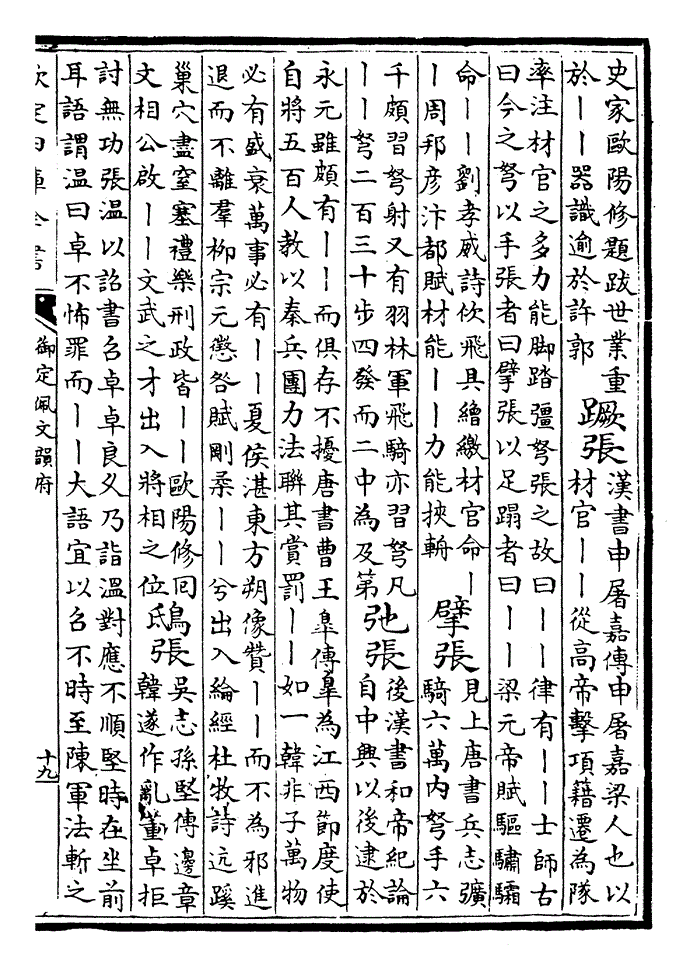 史家歐陽修題跋世業重
於丨丨器識逾於許郭
蹶張
漢書申屠嘉傳申屠嘉梁人也以
材官丨丨從高帝擊項籍遷為隊
率注材官之多力能脚踏彊弩張之故曰丨丨律有丨丨士師古
曰今之弩以手張者曰擘張以足蹋者曰丨丨梁元帝賦驅驌驦
命丨丨劉孝威詩佽飛具繒繳材官命丨
丨周邦彦汴都賦材能丨丨力能挾輈
擘張
見上唐書兵志彍
騎六萬内弩手六
千頗習弩射又有羽林軍飛騎亦習弩凡
丨丨弩二百三十步四發而二中為及第
弛張
後漢書和帝紀論
自中興以後逮於
永元雖頗有丨丨而俱存不擾唐書曹王臯傳臯為江西節度使
自將五百人教以秦兵團力法聯其賞罰丨丨如一韓非子萬物
必有盛衰萬事必有丨丨夏侯湛東方朔像贊丨丨而不為邪進
退而不離羣柳宗元懲咎賦剛柔丨丨兮出入綸經杜牧詩远蹊
巢穴盡窒塞禮樂刑政皆丨丨歐陽修囘
文相公啟丨丨文武之才出入將相之位
鴟張
吳志孫堅傳邊章
韓遂作亂董卓拒
討無功張温以詔書召卓卓良乆乃詣温對應不順堅時在坐前
耳語謂温曰卓不怖罪而丨丨大語宜以召不時至陳軍法斬之
欽定四庫全書
御定佩文韻府
十九